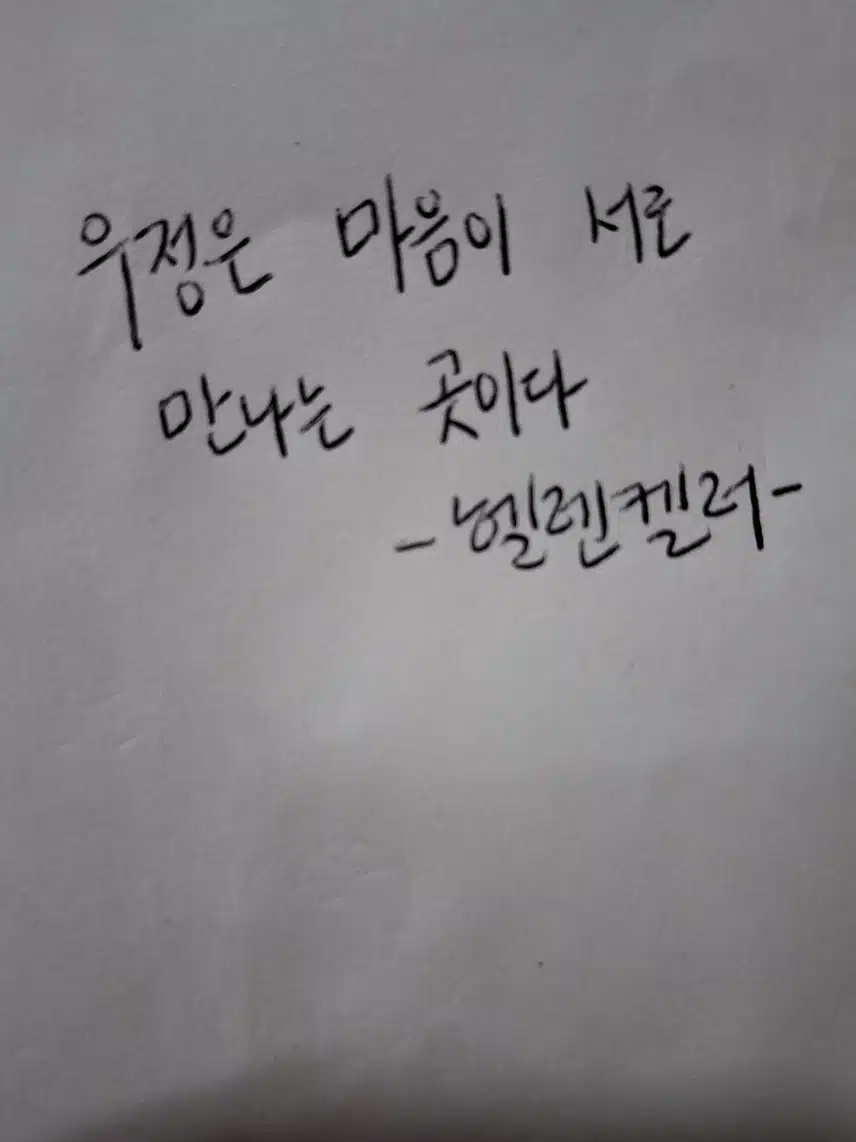 우정은 마음이 서로
만나는 곳이다
-헬렌켈러-